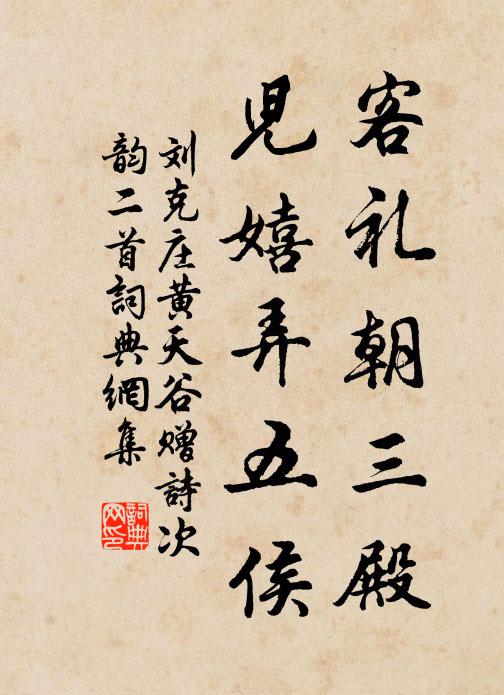 客礼朝三殿
児嬉弄五侯
刘克庄黄天谷赠詩次
韵二首詞典網集
詞典
网印